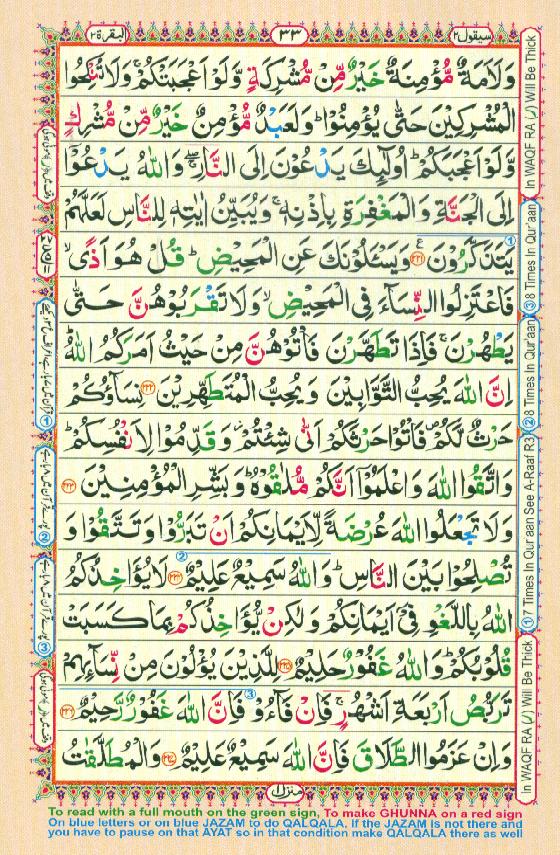 سيقول ٢
٣٣
البقرة ٢
وَلَاَمَةٌ مُّؤْمِنَةٌ خَيْرٌ مِّنْ مُّشْرِكَةٍ وَّلَوْ اَعْجَبَتْكُمْ ۚ وَلَا تُنْكِحُوا
الْمُشْرِكِيْنَ حَتّٰى يُؤْمِنُوْا ؕ وَلَعَبْدٌ مُّؤْمِنٌ خَيْرٌ مِّنْ مُّشْرِكٍ
وَّلَوْ اَعْجَبَكُمْ ؕ اُولٰٓئِكَ يَدْعُوْنَ اِلَى النَّارِ ۖۚ وَاللّٰهُ يَدْعُوْٓا
اِلَى الْجَنَّةِ وَالْمَغْفِرَةِ بِاِذْنِهٖ ۚ وَيُبَيِّنُ اٰيٰتِهٖ لِلنَّاسِ لَعَلَّهُمْ
يَتَذَكَّرُوْنَ ۝٢٢١ وَيَسْـَٔلُوْنَكَ عَنِ الْمَحِيْضِ ؕ قُلْ هُوَ اَذًى ۙ
فَاعْتَزِلُوا النِّسَآءَ فِى الْمَحِيْضِ ۙ وَلَا تَقْرَبُوْهُنَّ حَتّٰى
يَطْهُرْنَ ۚ فَاِذَا تَطَهَّرْنَ فَاْتُوْهُنَّ مِنْ حَيْثُ اَمَرَكُمُ اللّٰهُ ؕ
اِنَّ اللّٰهَ يُحِبُّ التَّوَّابِيْنَ وَيُحِبُّ الْمُتَطَهِّرِيْنَ ۝٢٢٢ نِسَآؤُكُمْ
حَرْثٌ لَّكُمْ ۪ فَاْتُوْا حَرْثَكُمْ اَنّٰى شِئْتُمْ ؗ وَقَدِّمُوْا لِاَنْفُسِكُمْ ؕ
وَاتَّقُوا اللّٰهَ وَاعْلَمُوْٓا اَنَّكُمْ مُّلٰقُوْهُ ؕ وَبَشِّرِ الْمُؤْمِنِيْنَ ۝٢٢٣
وَلَا تَجْعَلُوا اللّٰهَ عُرْضَةً لِّاَيْمَانِكُمْ اَنْ تَبَرُّوْا وَتَتَّقُوْا وَ
تُصْلِحُوْا بَيْنَ النَّاسِ ؕ وَاللّٰهُ سَمِيْعٌ عَلِيْمٌ ۝٢٢٤ لَا يُؤَاخِذُكُمُ
اللّٰهُ بِاللَّغْوِ فِىْٓ اَيْمَانِكُمْ وَلٰكِنْ يُّؤَاخِذُكُمْ بِمَا كَسَبَتْ
قُلُوْبُكُمْ ؕ وَاللّٰهُ غَفُوْرٌ حَلِيْمٌ ۝٢٢٥ لِلَّذِيْنَ يُؤْلُوْنَ مِنْ نِّسَآئِهِمْ
تَرَبُّصُ اَرْبَعَةِ اَشْهُرٍ ۚ فَاِنْ فَآءُوْ فَاِنَّ اللّٰهَ غَفُوْرٌ رَّحِيْمٌ ۝٢٢٦
وَاِنْ عَزَمُوا الطَّلَاقَ فَاِنَّ اللّٰهَ سَمِيْعٌ عَلِيْمٌ ۝٢٢٧ وَالْمُطَلَّقٰتُ
منزل ١
In WAQF RA (ر) Will Be Thick
③ 8 Times In Qur'aan
② 8 Times In Qur'aan
① 7 Times In Qur'aan See A-Raaf R3
In WAQF RA (ر) Will Be Thick
To read with a full mouth on the green sign, To make GHUNNA on a red sign
On blue letters or on blue JAZAM to do QALQALA, If the JAZAM is not there and
you have to pause on that AYAT so in that condition make QALQALA there as well